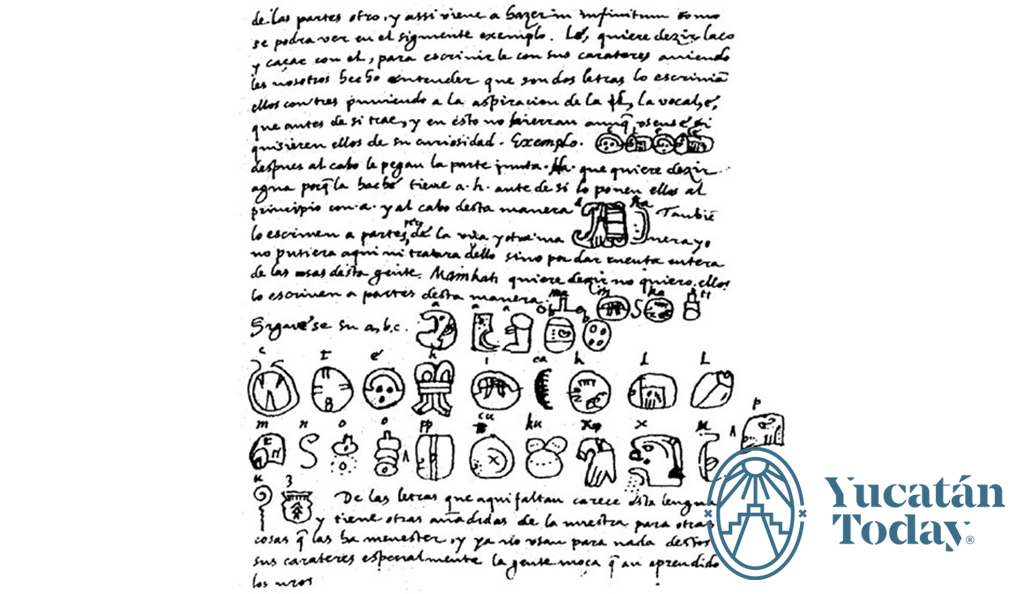 de las partes otro, y assi viene a hazer in infinitum como
se podra ver en el siguiente exemplo. Lé, quiere dezir laço
y caçar con el, para escriuirle con sus carateres auiendo
les nosotros hecho entender que son dos letras lo escriuiã
ellos con tres puniendo a la aspiracion de la l, la vocal, é,
que antes de si trae, y en esto no hierran aunq̃ osense si
quisieren ellos de su curiosidad. Exemplo. e l e lé
despues al cabo le pegan la parte junta. Ha que quiere dezir
agua porq̃ la hache tiene a. h. ante de si lo ponen ellos al
principio con. a. y al cabo desta manera ha Tambiẽ
lo escriuen a partes, de la vna y otra ma nera yo
no pusiera aqui ni tratara dello sino por dar cuenta entera
de las cosas desta gente. Mainkati quiere dezir no quiero, ellos
lo escriuen a partes desta manera. ma i n ka ti
Siguese su a, b, c. a a a b b
c t e h i ca k l l
m n o o pp cu ku x x u p
u z De las letras que aqui faltan carece esta lengua
y tiene otras añadidas de la nuestra para otras
cosas q̃ las ha menester, y ya no vsan para nada destos
sus carateres especialmente la gente moça q̃ an aprendido
los nros
Yucatán
Today®